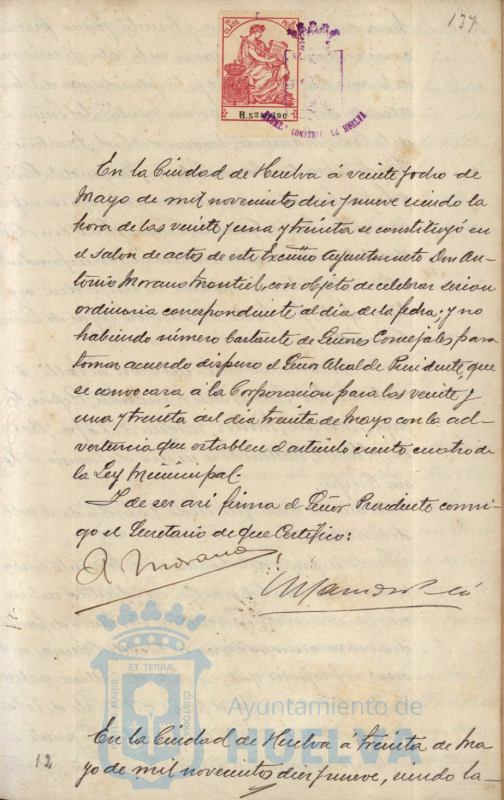 137
9ª CLASE
PESETA
AYUNTº CONSTNAL DE HUELVA
En la Ciudad de Huelva á veinte y ocho de
Mayo de mil novecientos diez y nueve siendo la
hora de las veinte y una y treinta se constituyó en
el salon de actos de este Excmo Ayuntamiento Don An-
tonio Morano Montiel, con objeto de celebrar sesion
ordinaria correspondiente al dia de la fecha; y no
habiendo número bastante de Señores Concejales para
tomar acuerdo dispuso el Señor Alcalde Presidente, que
se convocara á la Corporacion para las veinte y
una y treinta del dia treinta de Mayo con la ad-
vertencia que establece el artículo ciento cuatro de
la Ley Municipal.
Y de ser asi firma el Señor Presidente conmi-
go el Secretario de que Certifico:
A Morano
ET TERRÆ
MARIS
CUSTODIA
Ayuntamiento de
HUELVA
En la Ciudad de Huelva á treinta de Ma-
12
yo de mil novecientos diez y nueve, siendo la-